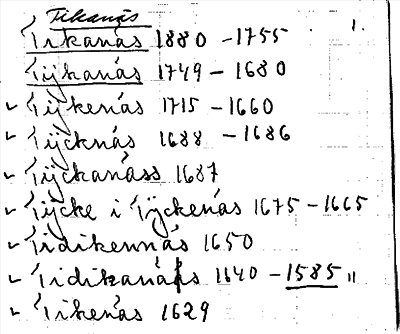 Tikanäs
1.
Tikanäs 1880 - 1755
Tijkanäs 1749 - 1680
Tijkenäs 1715 - 1660
Tijcknäs 1688 - 1686
Tijckanäss 1687
Tijcke i Tijckenäs 1675 - 1665
Tidikennäs 1650
Tidikanäs 1640 - 1585 "
Tikenäs 1629